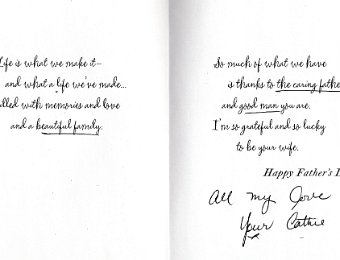 Life is what we make it–
and what a life we've made...
filled with memories and love
and a beautiful family.
So much of what we have
is thanks to the caring fathe
and good man you are.
I'm so grateful and so lucky
to be your wife.
Happy Father's D
All my love
Your Cathie